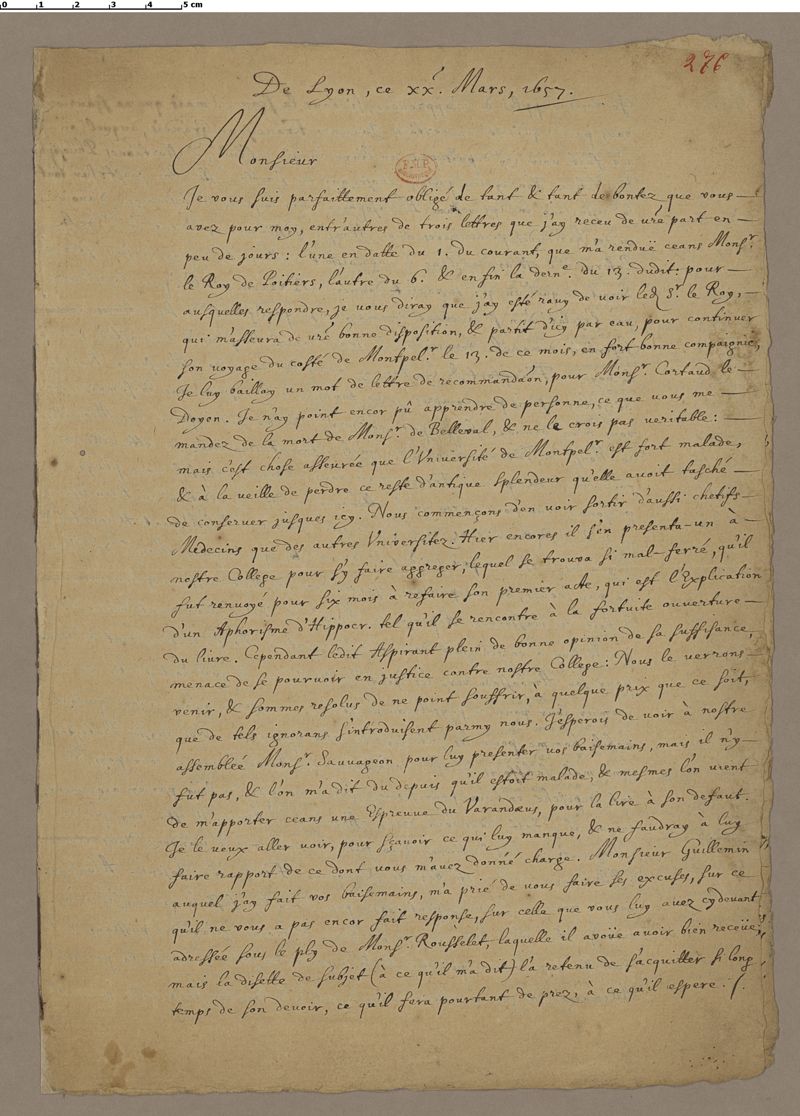 0 1 2 3 4 5 cm
276
De Lyon, ce xx.e Mars, 1657.
Monsieur
Je vous suis parfaittement obligé de tant & tant de bontez que vous
avez pour moy, entr'autres de trois lettres que j'ay receu de vr̃e part en
peu de jours: l'une en datte du 1. du courant, que m'a renduë ceans Monsr.
le Roy de Poitiers, l'autre du 6. & enfin la derne. du 13. dudit: pour
ausquelles respondre, je vous diray que j'ay esté ravy de voir led. Sr. le Roy,
qui m'asseura de vr̃e bonne disposition, & partit d'icy par eau, pour continuer
son voyage du costé de Montpelr. le 13. de ce mois, en fort bonne compaignie,
Je luy baillay un mot de lettre de recommandãon, pour Monsr. Cortaud le
Doyen. Je n'ay point encor pû apprendre de personne, ce que vous me
mandez de la mort de Monsr. de Belleval, & ne le crois pas veritable:
mais c'est chose asseurée que l'Université de Montpelr. est fort malade,
& à la veille de perdre ce reste d'antique splendeur qu'elle avoit tasché
de conserver jusques icy. Nous commençons d'en voir sortir d'aussi chetifs
Medecins que des autres Universitez. Hier encores il s'en presenta un à
nostre College pour s'y faire aggreger, lequel se trouva si mal-ferré, qu'il
fut renvoyé pour six mois à refaire son premier acte, qui est l'Explication
d'un Aphorisme d'Hippocr. tel qu'il se rencontre à la fortuite ouverture
du livre. Cependant ledit Aspirant plein de bonne opinion de sa suffisance,
menace de se pourvoir en justice contre nostre College: Nous le verrons
venir, & sommes resolus de ne point souffrir, à quelque prix que ce soit,
que de tels ignorans s'introduisent parmy nous. J'esperois de voir à nostre
assemblée Monsr. Sauvageon pour luy presenter vos baisemains, mais il n'y
fut pas, & l'on m'a dit du depuis qu'il estoit malade, & mesmes l'on vient
de m'apporter ceans une Espreuve du Varandæus, pour la lire à son defaut.
Je le veux aller voir, pour sçavoir ce qui luy manque, & ne faudray à luy
faire rapport de ce dont vous m'avez donné charge. Monsieur Guillemin
auquel j'ay fait vos baisemains, m'a prié de vous faire ses excuses, sur ce
qu'il ne vous a pas encor fait response, sur celle que vous luy avez cydevant
adressée sous le ply de Monsr. Rousselet, laquelle il avoüe avoir bien receüe,
mais la disette de subjet (à ce qu'il m'a dit) l'a retenu de s'acquitter si long
temps de son devoir, ce qu'il fera pourtant de prez, à ce qu'il espere.